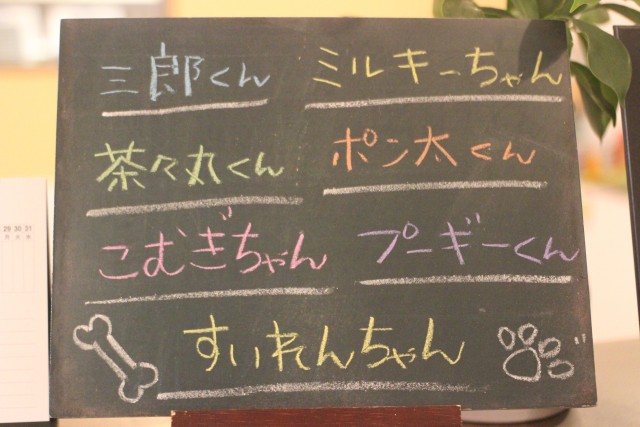 三郎くん ミルキーちゃん
茶々丸くん ポン太くん
こむぎちゃん プーギーくん
すいれんちゃん
29 30 31
月 火 水